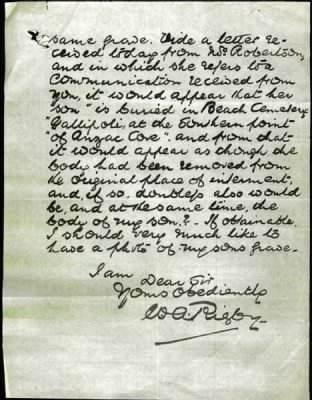 same grave. Vide a letter re-
ceived today from Mrs. Robertson,
and in which she refers to a
communication received from
you, it would appear that her
son "is buried in Beach Cemetery
"Gallipoli, at the Southern point
"of Anzac Cove", and from that
it would appear as though the
body had been removed from
the original place of interment,
and, if so, doubtless also would
be, and at the same time, the
body of my son? - If obtainable
I should very much like to
have a photo of my sons grave.
I am Dear Sir
Yours obediently
W A Rigby